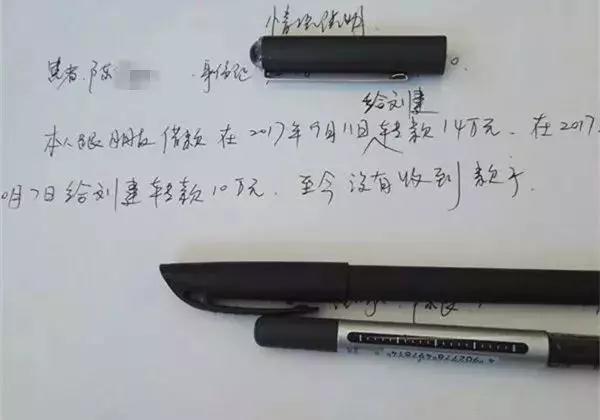 情况说明
患者 陈 身份证
给刘建
本人跟朋友借款 在2017年9月11日转款14万元、在2017.
0月7日给刘建转款10万元、至今没有收到款子.